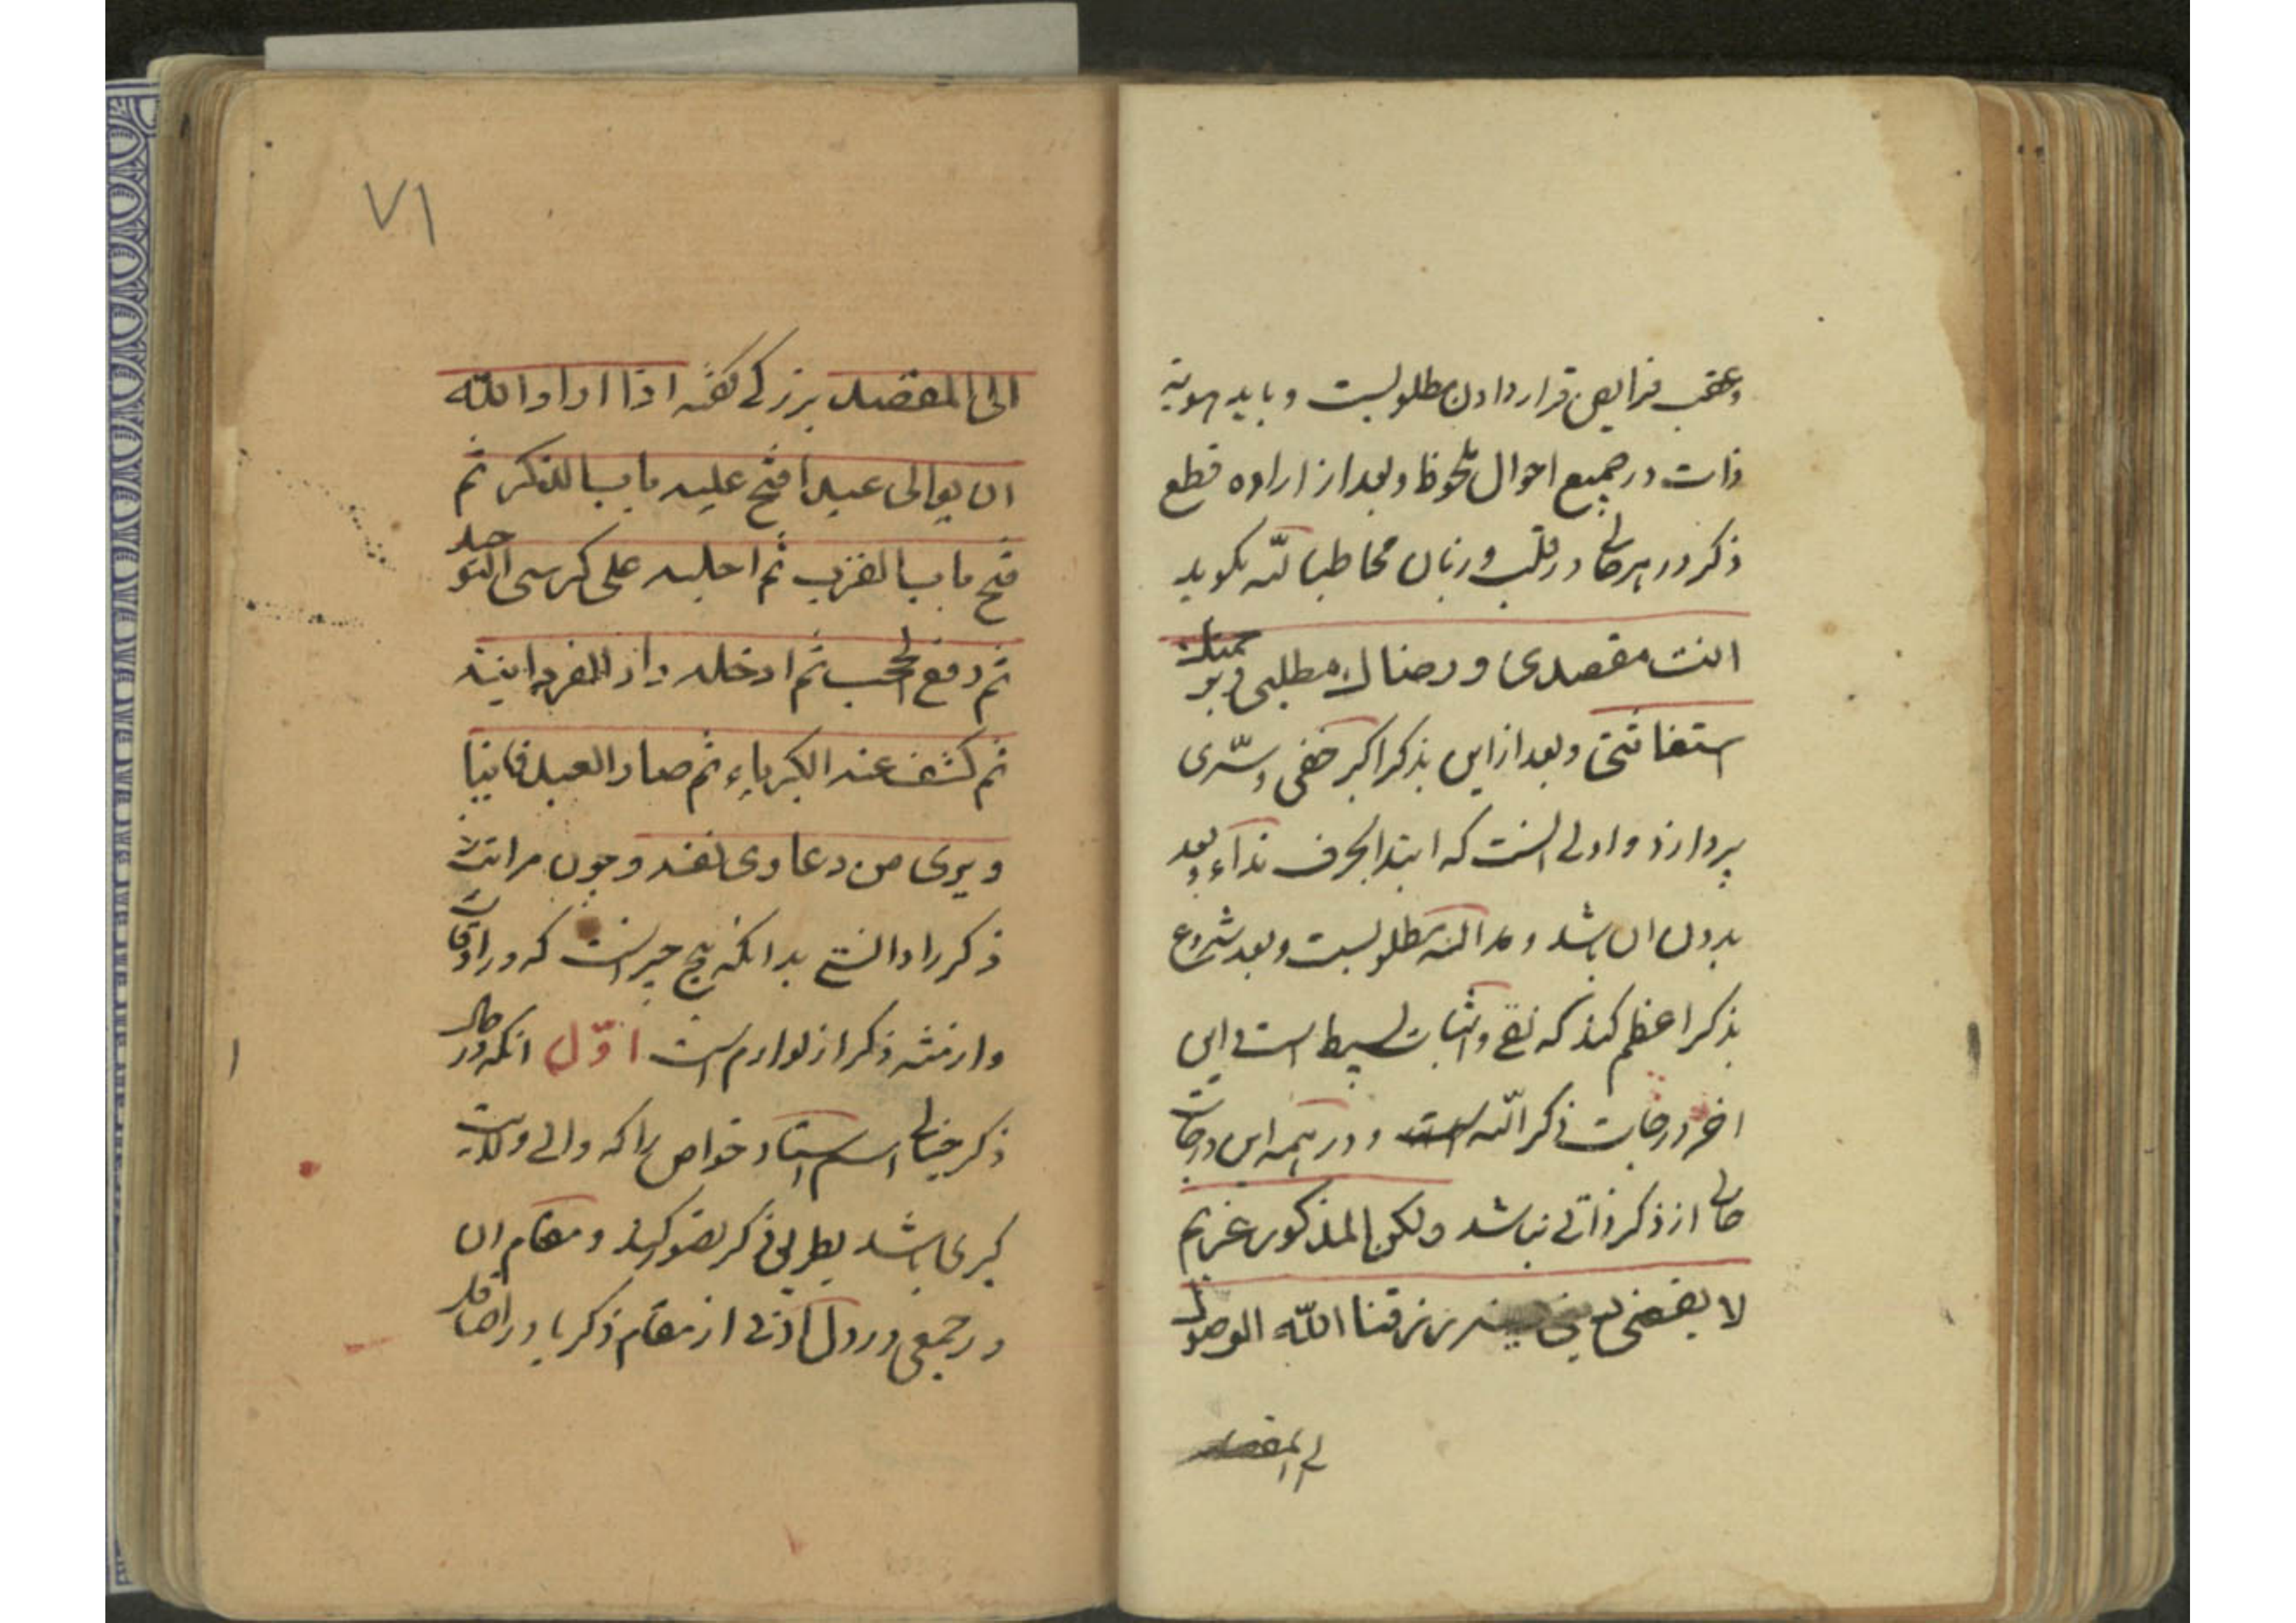 وعقب فرایض قرار دادن مطلوبست و باید هویة
ذات در جمیع احوال ملحوظ و بعد از اراده قطع
ذکر در هر حال در قلب و زبان مخاطبا لله بکوید
انت مقصدی و رضاک مطلبی و برحمتک
استغاثتی و بعد از این بذکر اکبر خفی و سّری
پردازد و اولی انست که ابتدا بحرف نداء و بعد
بدون ان باشد و مد الله مطلوبست و بعد شروع
بذکر اعظم کند که نفی و اثبات بسیط است و این
اخر درجات ذکر الله است و در همه این درجات
خالی از ذکر ذاتی نباشد ولکن المذکور غریم
لا یقضی رزقنا الله الوصول
الی المقصد
٧١
الی المقصد بزرکی کفته اذا اراد الله
ان یوالی عبدا فتح علیه باب الذکر ثم
فتح باب القرب ثم اجلسه علی کرسی التوحید
ثم رفع الحجب ثم ادخله دار الفردانیة
ثم کشف عنه الکبریاء ثم صار العبد فانیا
و بری من دعاوی نفسه و چون مراتب
ذکر را دانستی بدانکه پنج چیز است که در اوقات
ذکر از لوازم است اوّل انکه در حال
ذکر خیالی استاد خواص را که والی ولایت
کبری باشد بطریق ذکر تصور کند و مقام ان
در جمعی در دل از مقام ذکر یا در